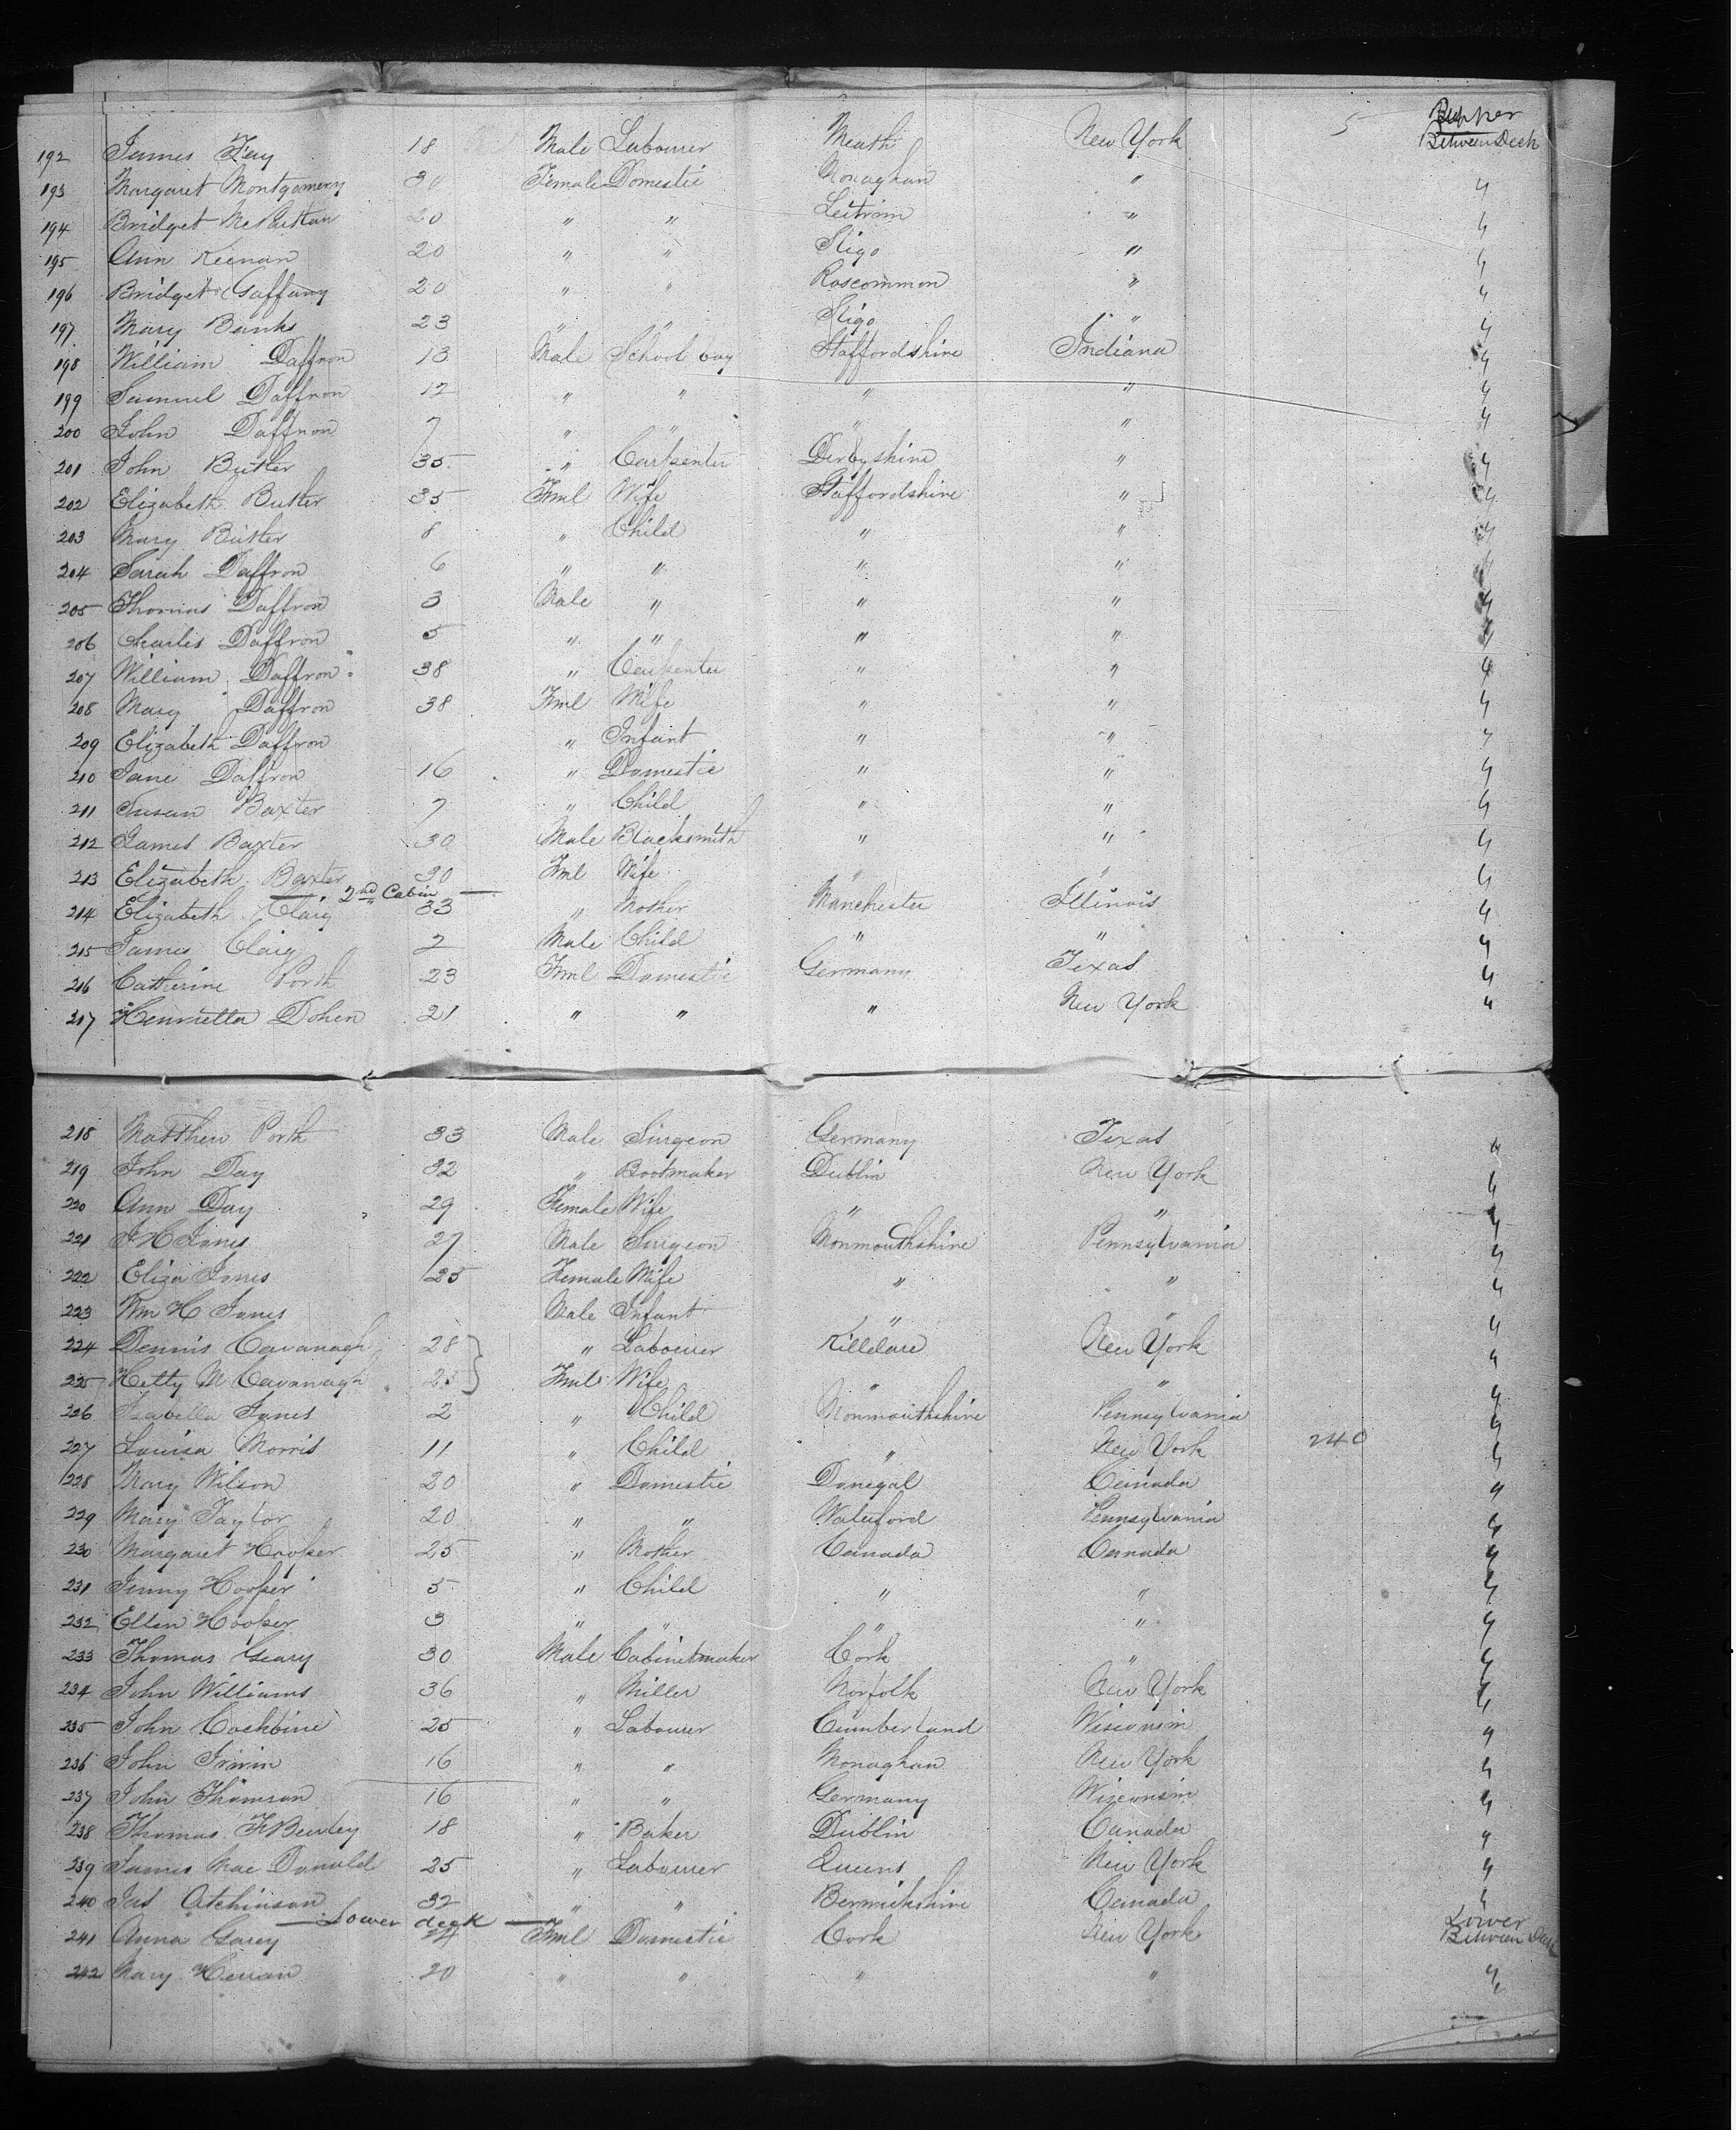 5 Upper Between Deck
192 James Fay 18 Male Labourer Meath New York
193 Margaret Montgomery 30 Female Domestic Monaghan " "
194 Bridget 20 " " Leitrim " "
195 Ann Keenan 20 " " Sligo " "
196 Bridget Gaffany 20 " " Roscommon " "
197 Mary Banks 23 " " Sligo " "
198 William Daffron 13 Male School boy Staffordshire Indiana "
199 Samuel Daffron 12 " " " " "
200 John Daffron 7 " " " " "
201 John Butler 35 " Carpenter Derbyshire " "
202 Elizabeth Butler 35 Fml Wife Staffordshire " "
203 Mary Butler 8 " Child " " "
204 Sarah Daffron 6 " " " " "
205 Thomas Daffron 3 Male " " " "
206 Charles Daffron 5 " " " " "
207 William Daffron 38 " Carpenter " " "
208 Mary Daffron 38 Fml Wife " " "
209 Elizabeth Daffron " Infant " " "
210 Jane Daffron 16 " Domestic " " "
211 Susan Baxter 7 " Child " " "
212 James Baxter 30 Male Blacksmith " " "
213 Elizabeth Baxter 30 Fml Wife " " "
2nd Cabin
214 Elizabeth Claig 33 " Mother Manchester Illinois "
215 James Claig 2 Male Child " " "
216 Catherine Porth 23 Fml Domestic Germany Texas "
217 Henrietta Dohen 21 " " " New York "
218 Matthew Porth 33 Male Surgeon Germany Texas "
219 John Day 32 " Bootmaker Dublin New York "
220 Ann Day 29 Female Wife " " "
221 J H Jones 27 Male Surgeon Monmouthshire Pennsylvania "
222 Eliza Jones 25 Female Wife " " "
223 Wm H Jones Male Infant " " "
224 Dennis Cavanagh 28 " Labourer Killdare New York "
225 Hetty M Cavanagh Fml Wife " " "
226 Isabella Jones 2 " Child Monmouthshire Pennsylvania "
227 Louisa Morris 11 " Child " New York 240 "
228 Mary Wilson 20 " Domestic Donegal Canada "
229 Mary Taylor 20 " " Waterford Pennsylvania "
230 Margaret Hooper 25 " Mother Canada Canada "
231 Jenny Hooper 5 " Child " " "
232 Ellen Hooper 3 " " " " "
233 Thomas Geary 30 Male Cabinetmaker Cork " "
234 John Williams 36 " Miller Norfolk New York "
235 John Cockbine 25 " Labourer Cumberland Wisconsin "
236 John Irwin 16 " " Monaghan New York "
237 John Thomson 16 " " Germany Wisconsin "
238 Thomas F Bewley 18 " Baker Dublin Canada "
239 James Mac Donald 25 " Labourer Queens New York "
240 Jas Atchinson 32 " " Berwickshire Canada "
Lower deck
241 Anna Garey Fml Domestic Cork New York Lower Between Deck
242 Mary 20 " " " " "